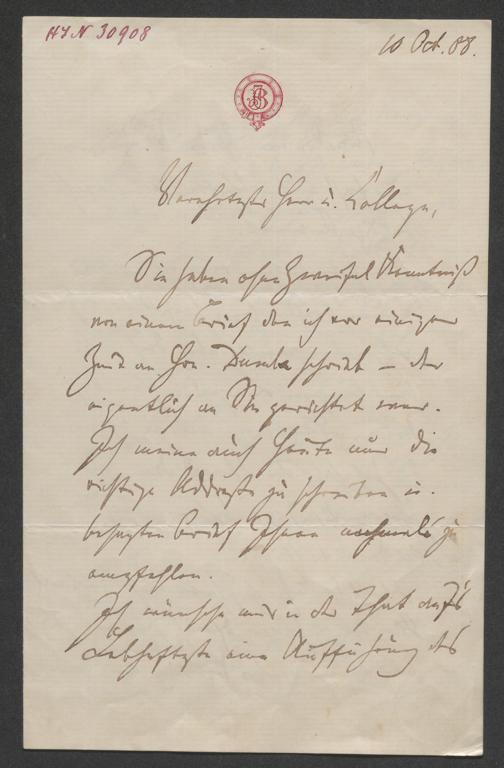 HIN 30908
10 Oct. 88.
JB
Verehrtester Herr u. Kollege,
Sie haben ohne Zweifel Kenntniß
von einem Brief den ich vor einiger
Zeit an Hrn. Dumba schrieb – der
eigentlich an Sie gerichtet war.
Ich meine auch heute nur die
richtige Addresse zu schreiben u.
besagten Brief Ihnen nochmals zu
empfehlen.
Ich wünsche mir in der That auf's
Lebhafteste eine Aufführung des